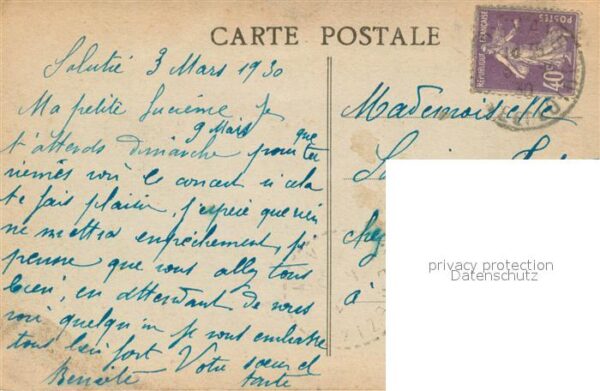 CARTE POSTALE
3 Mars 1930
Ma petite Lucienne Je
9 Mars
t'attends dimanche pour que tu
viennes voir le concert si cela
te fais plaisir, j'espère que rien
ne mettra empêchement, je
pense que vous allez tous
bien, en attendant de vous
voir quelqu'un je vous embrasse
tous bien fort Votre sœur et
tante
Mademoiselle
chez
à
REPUBLIQUE FRANÇAISE
POSTES
40c
privacy protection
Datenschutz